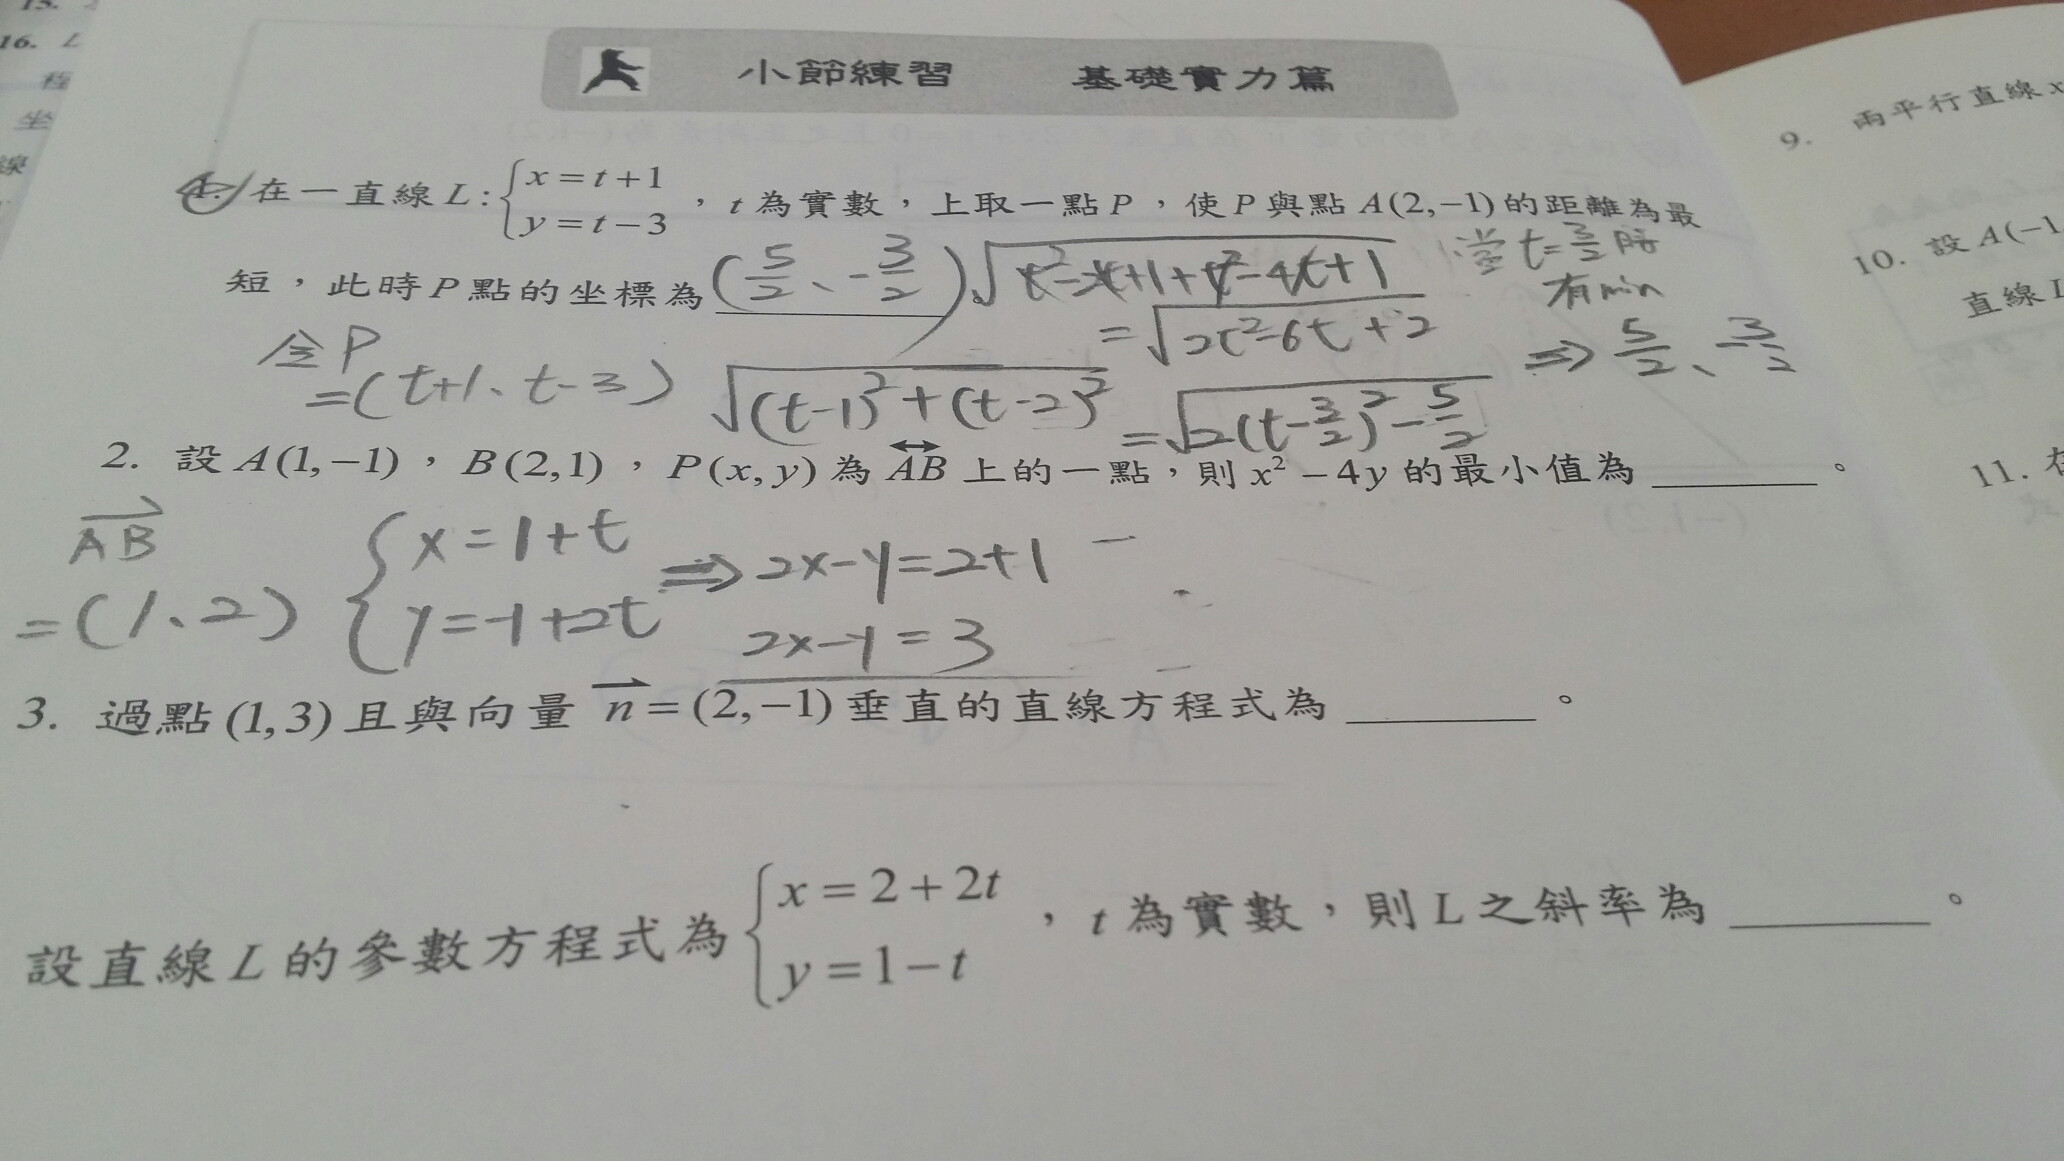 15.
16. L
程
坐
線
小節練習 基礎實力篇
1. 在一直線 L : { x = t + 1 , y = t − 3 ，t 為實數，上取一點 P ，使 P 與點 A(2,−1) 的距離為最
短，此時 P 點的坐標為 (5/2、-3/2)
√(t²-2t+1+t²-4t+1)
當 t=3/2 時
有min
= √(2t²-6t+2)
⇒ 5/2、-3/2
令P
=(t+1、t-3)
√((t-1)²+(t-2)²)
= √(2(t-3/2)²-5/2)
2. 設 A(1,−1) ， B(2,1) ， P(x, y) 為 AB 上的一點，則 x² − 4y 的最小值為 ______ 。
AB
=(1、2)
{ x=1+t
y=-1+2t
⇒ 2x-y=2+1
2x-y=3
3. 過點 (1,3) 且與向量 n = (2,−1) 垂直的直線方程式為 ______ 。
設直線 L 的參數方程式為 { x = 2 + 2t , y = 1 − t ，t 為實數，則 L 之斜率為 ______ 。
9. 兩平行直線 x
10. 設 A(−1,
直線 L
11. 在